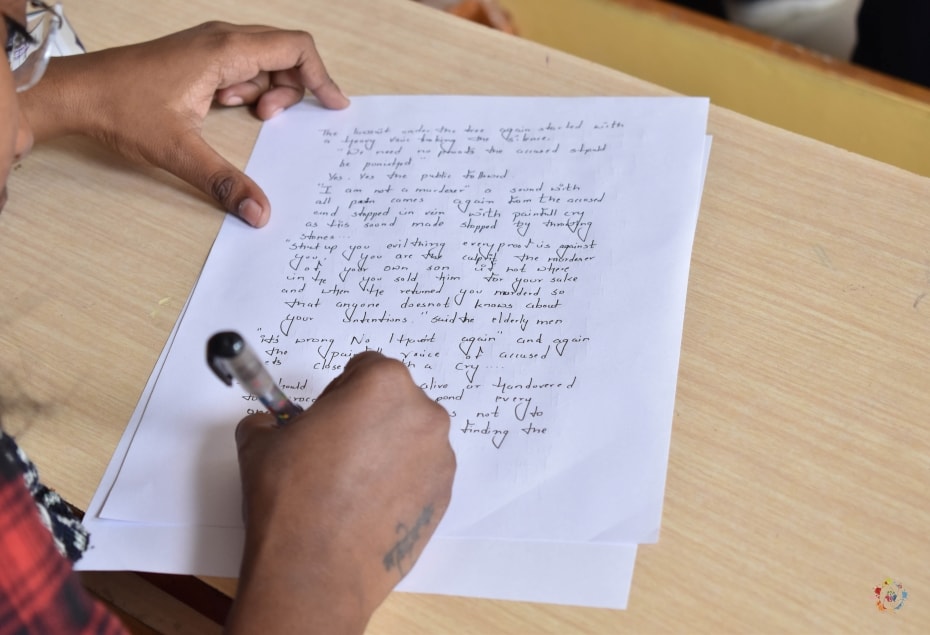 The under the tree again started with
a heavy voice breaking the silence.
"We need no proofs the accused should
be punished"
Yes. Yes the public followed.
"I am not a murderer" a sound with
all pain comes again from the accused
and stopped in vein with painfull cry
as this sound made stopped by throwing
stones...
"Shut up you evil thing every proof is against
you, you are the culprit the murderer
of your own son it's not where
in the you sold him for your sake
and when he returned you murderd so
that anyone doesnot knows about
your intentions." said the elderly men
"it's wrong No I havn't again" and again
the painfull voice of accused
closed a cry....
alive or handovered
pond every
not to
finding the